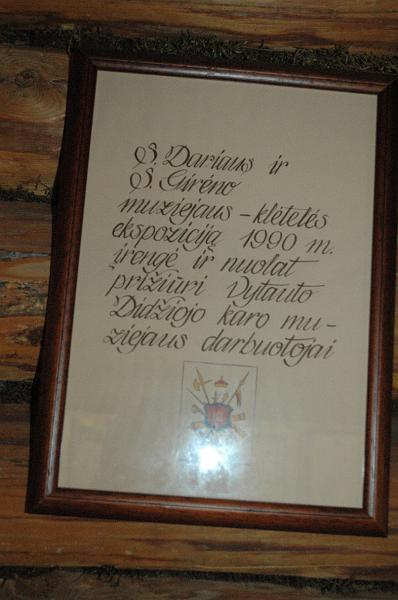 S. Dariaus ir
S. Girėno
muziejaus – klėtelės
ekspoziciją 1990 m.
įrengė ir nuolat
prižiūri Vytauto
Didžiojo karo mu–
ziejaus darbuotojai